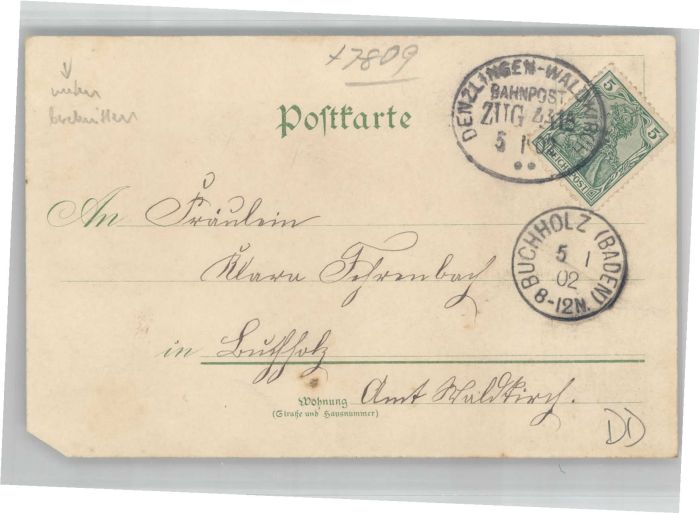 x7809
DENZLINGEN-WALDKIRCH
BAHNPOST
ZUG
5 1 02
5 5
REICHSPOST
Postkarte
An Fräulein
Klara Fehrenbach
BUCHHOLZ (BADEN)
5 1
02
8-12N.
in Buchholz
Amt Waldkirch.
Wohnung
(Straße und Hausnummer)